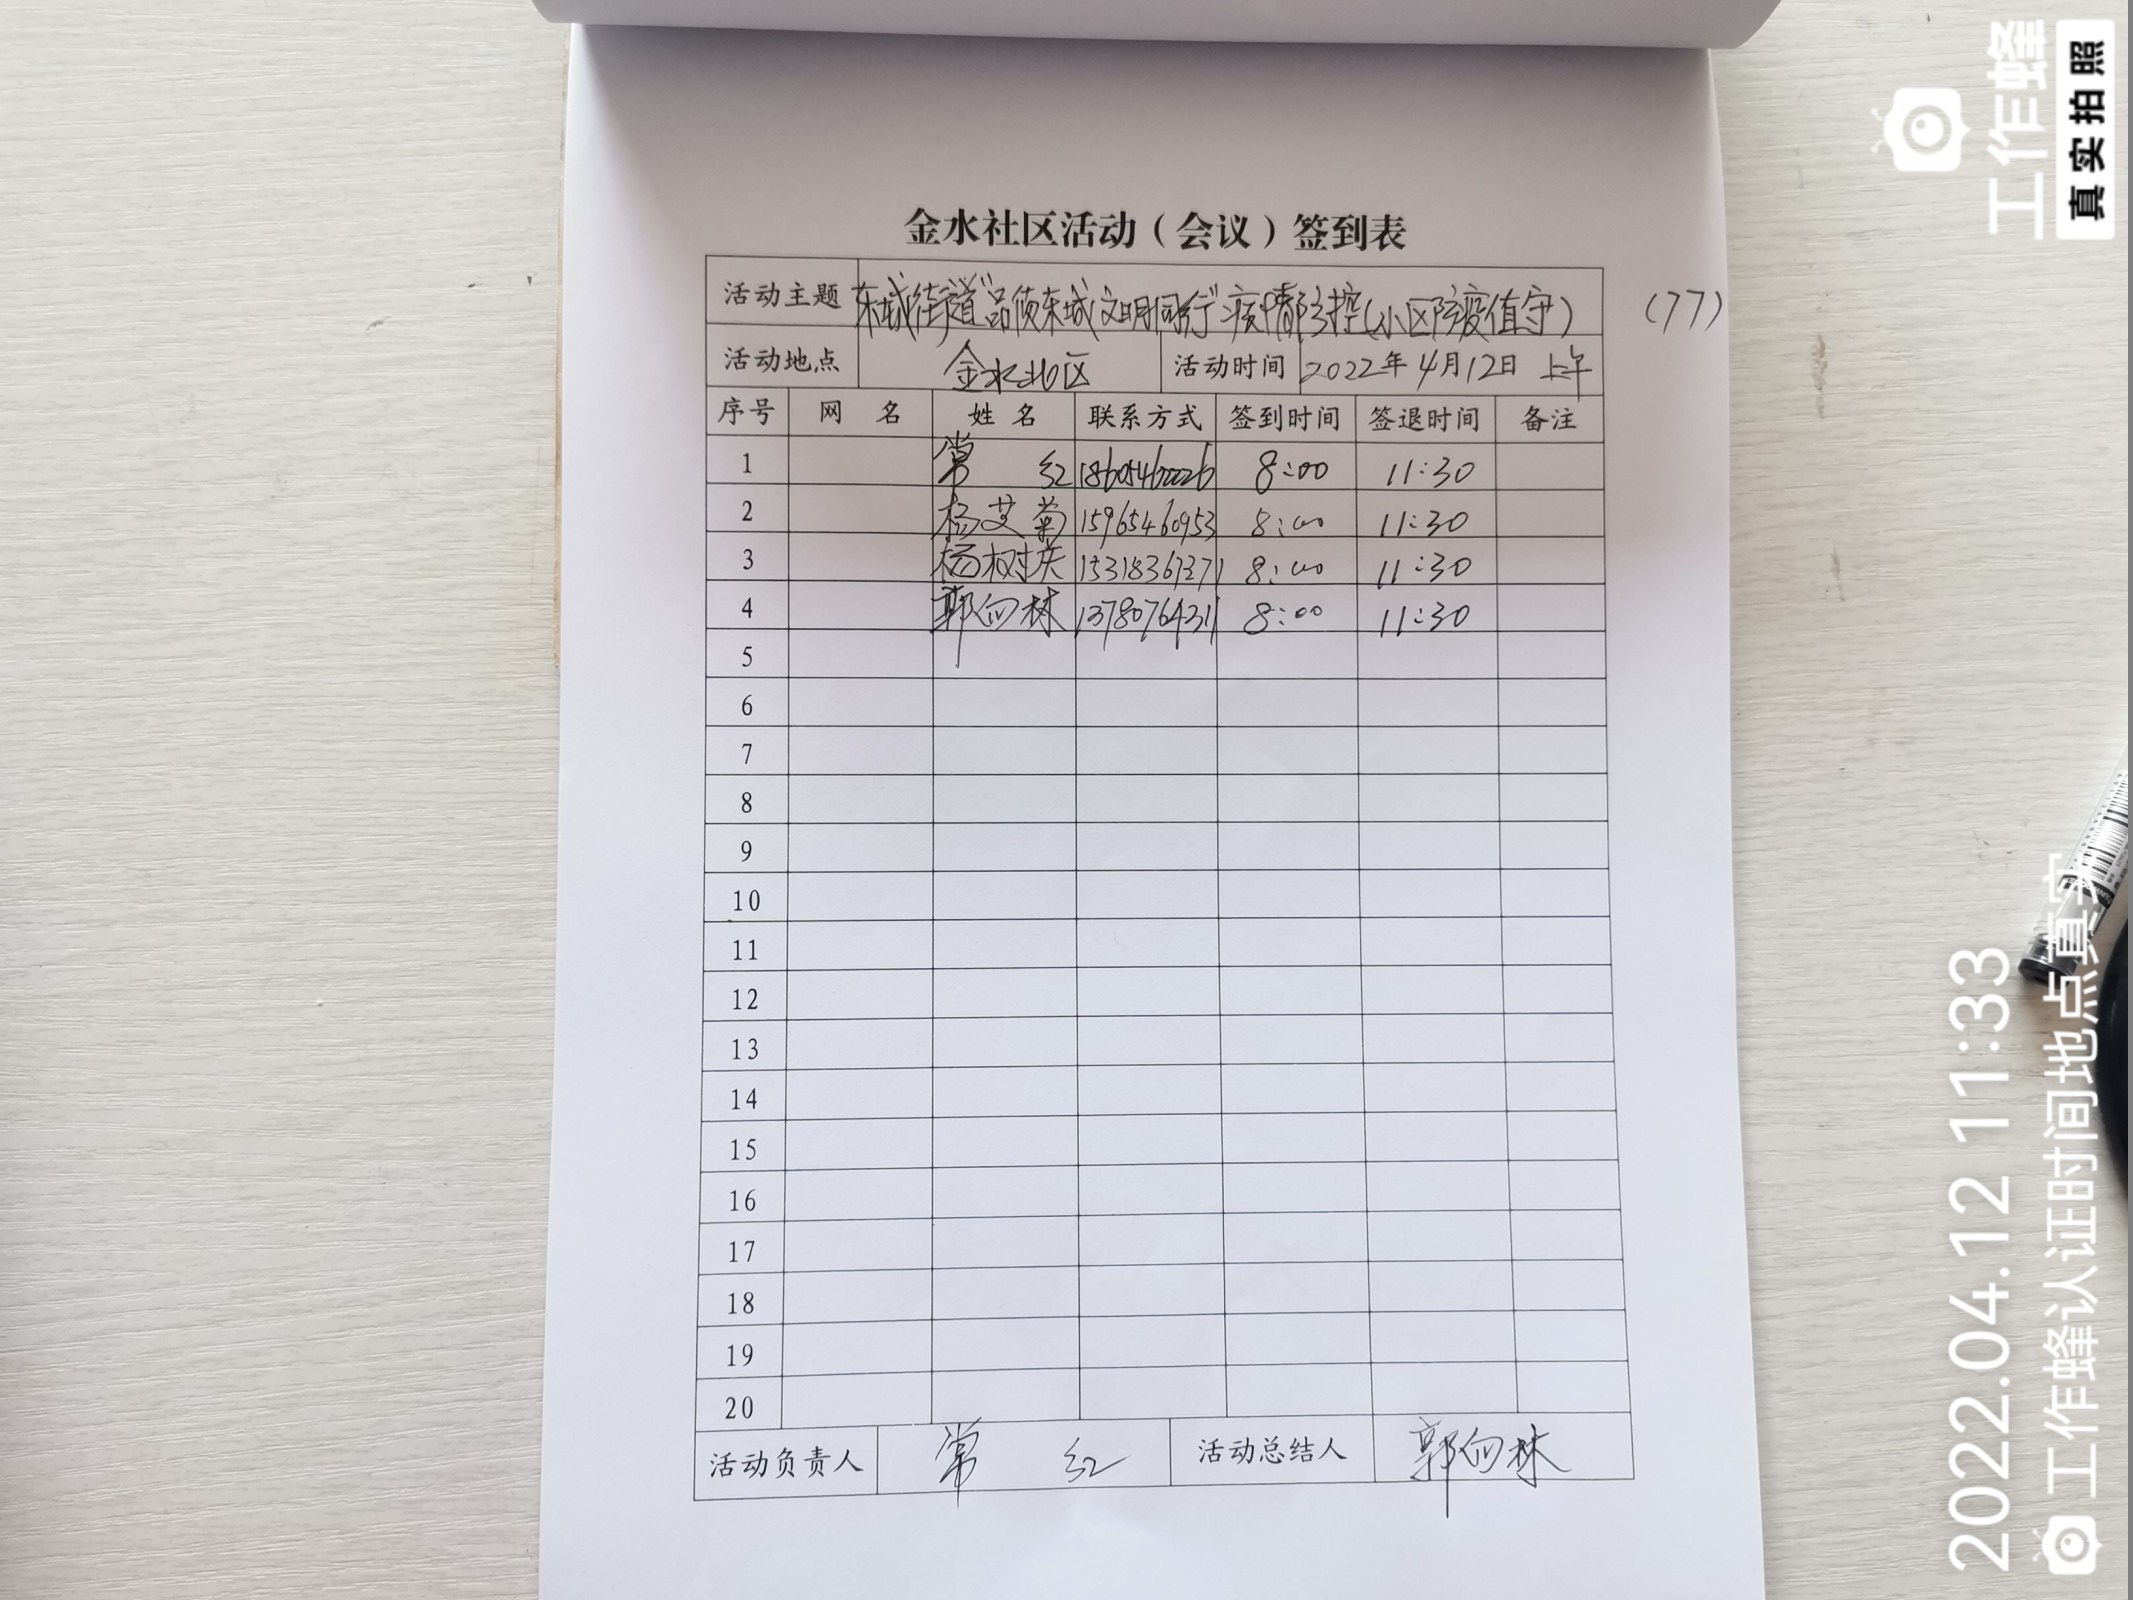 金水社区活动（会议）签到表
活动主题 东城街道“品质东城 文明同行”疫情防控（小区防疫值守） (77)
活动地点 金水北区 活动时间 2022年4月12日 上午
序号 网 名 姓 名 联系方式 签到时间 签退时间 备注
1 常 红 18605460226 8:00 11:30
2 杨艾菊 15965460953 8:00 11:30
3 杨树庆 15318361371 8:00 11:30
4 郭向林 13780764311 8:00 11:30
5
6
7
8
9
10
11
12
13
14
15
16
17
18
19
20
活动负责人 常 红 活动总结人 郭向林
工作蜂
真实拍照
2022.04.12 11:33
工作蜂认证时间地点真实